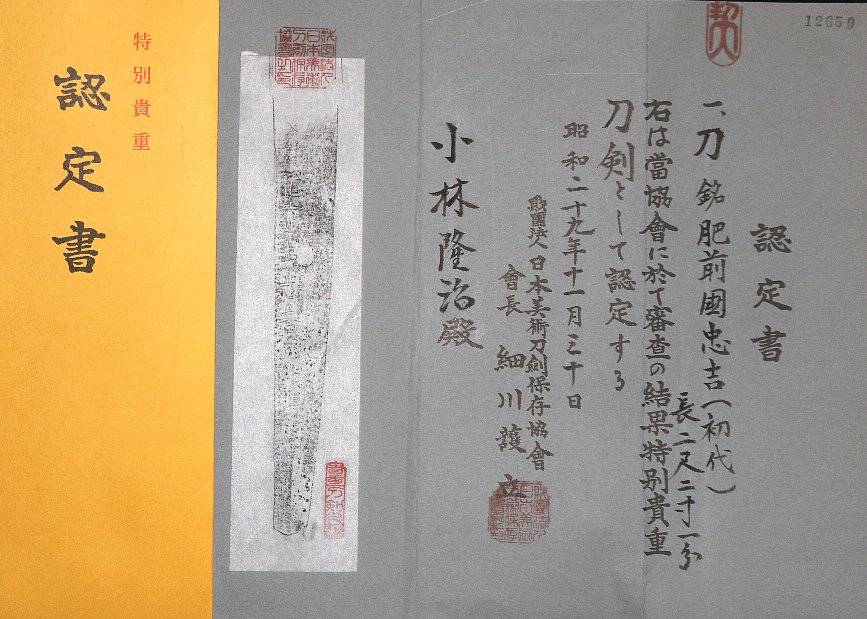 特別貴重
認定書
12659
認定書
一、刀 銘 肥前國忠吉(初代)
長二尺二寸一分
右は當協會に於て審査の結果特別貴重
刀劍として認定する
昭和二十九年十一月三十日
財團法人日本美術刀劍保存協會
會長 細川護立
小林隆治殿